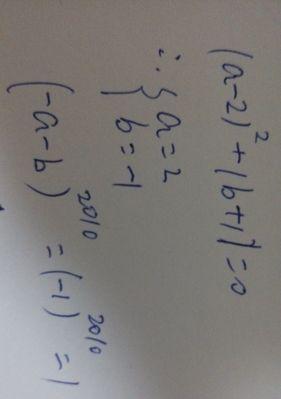 (a-2)² + |b+1| = 0
∴ { a = 2
b = -1
(-a-b)²⁰¹⁰ = (-1)²⁰¹⁰ = 1